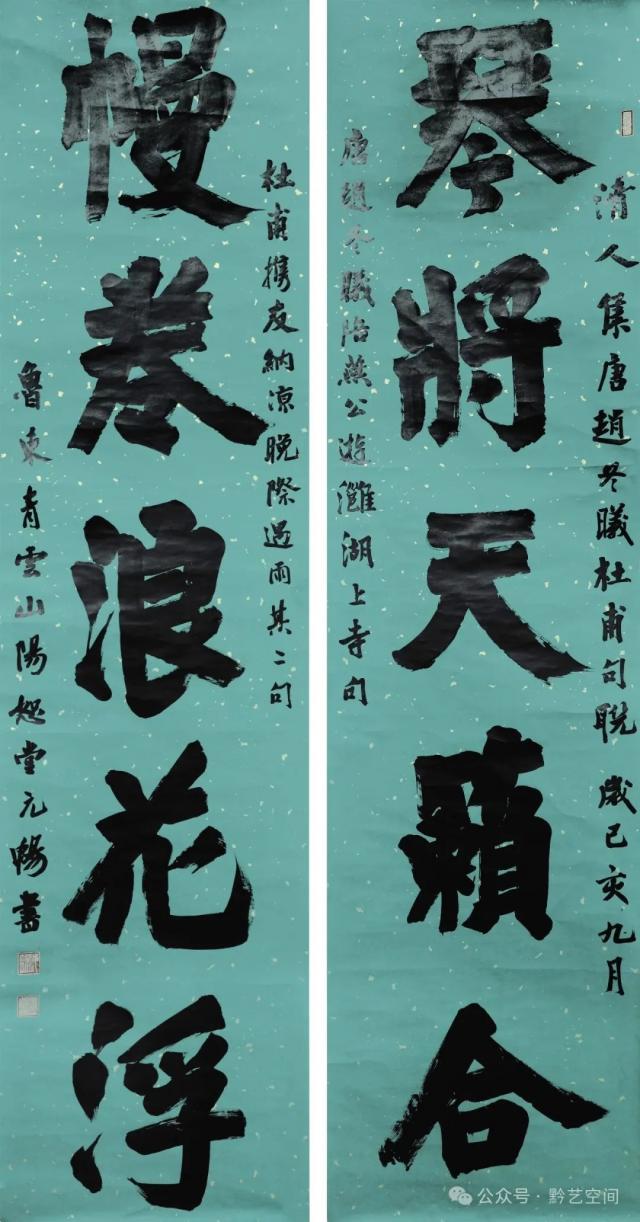 清人集唐趙冬曦杜甫句聯 歲己亥九月
琴將天籟合
唐趙冬曦陪燕公遊灉湖上寺句
杜甫携友納涼晚際遇雨其二句
幔卷浪花浮
魯東青雲山陽恕堂元暢書
公众号·黔艺空间